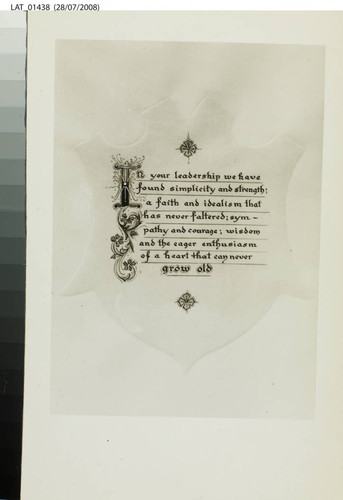 LAT_01438 (28/07/2008)
In your leadership we have
found simplicity and strength;
a faith and idealism that
has never faltered; sym-
pathy and courage; wisdom
and the eager enthusiasm
of a heart that can never
grow old